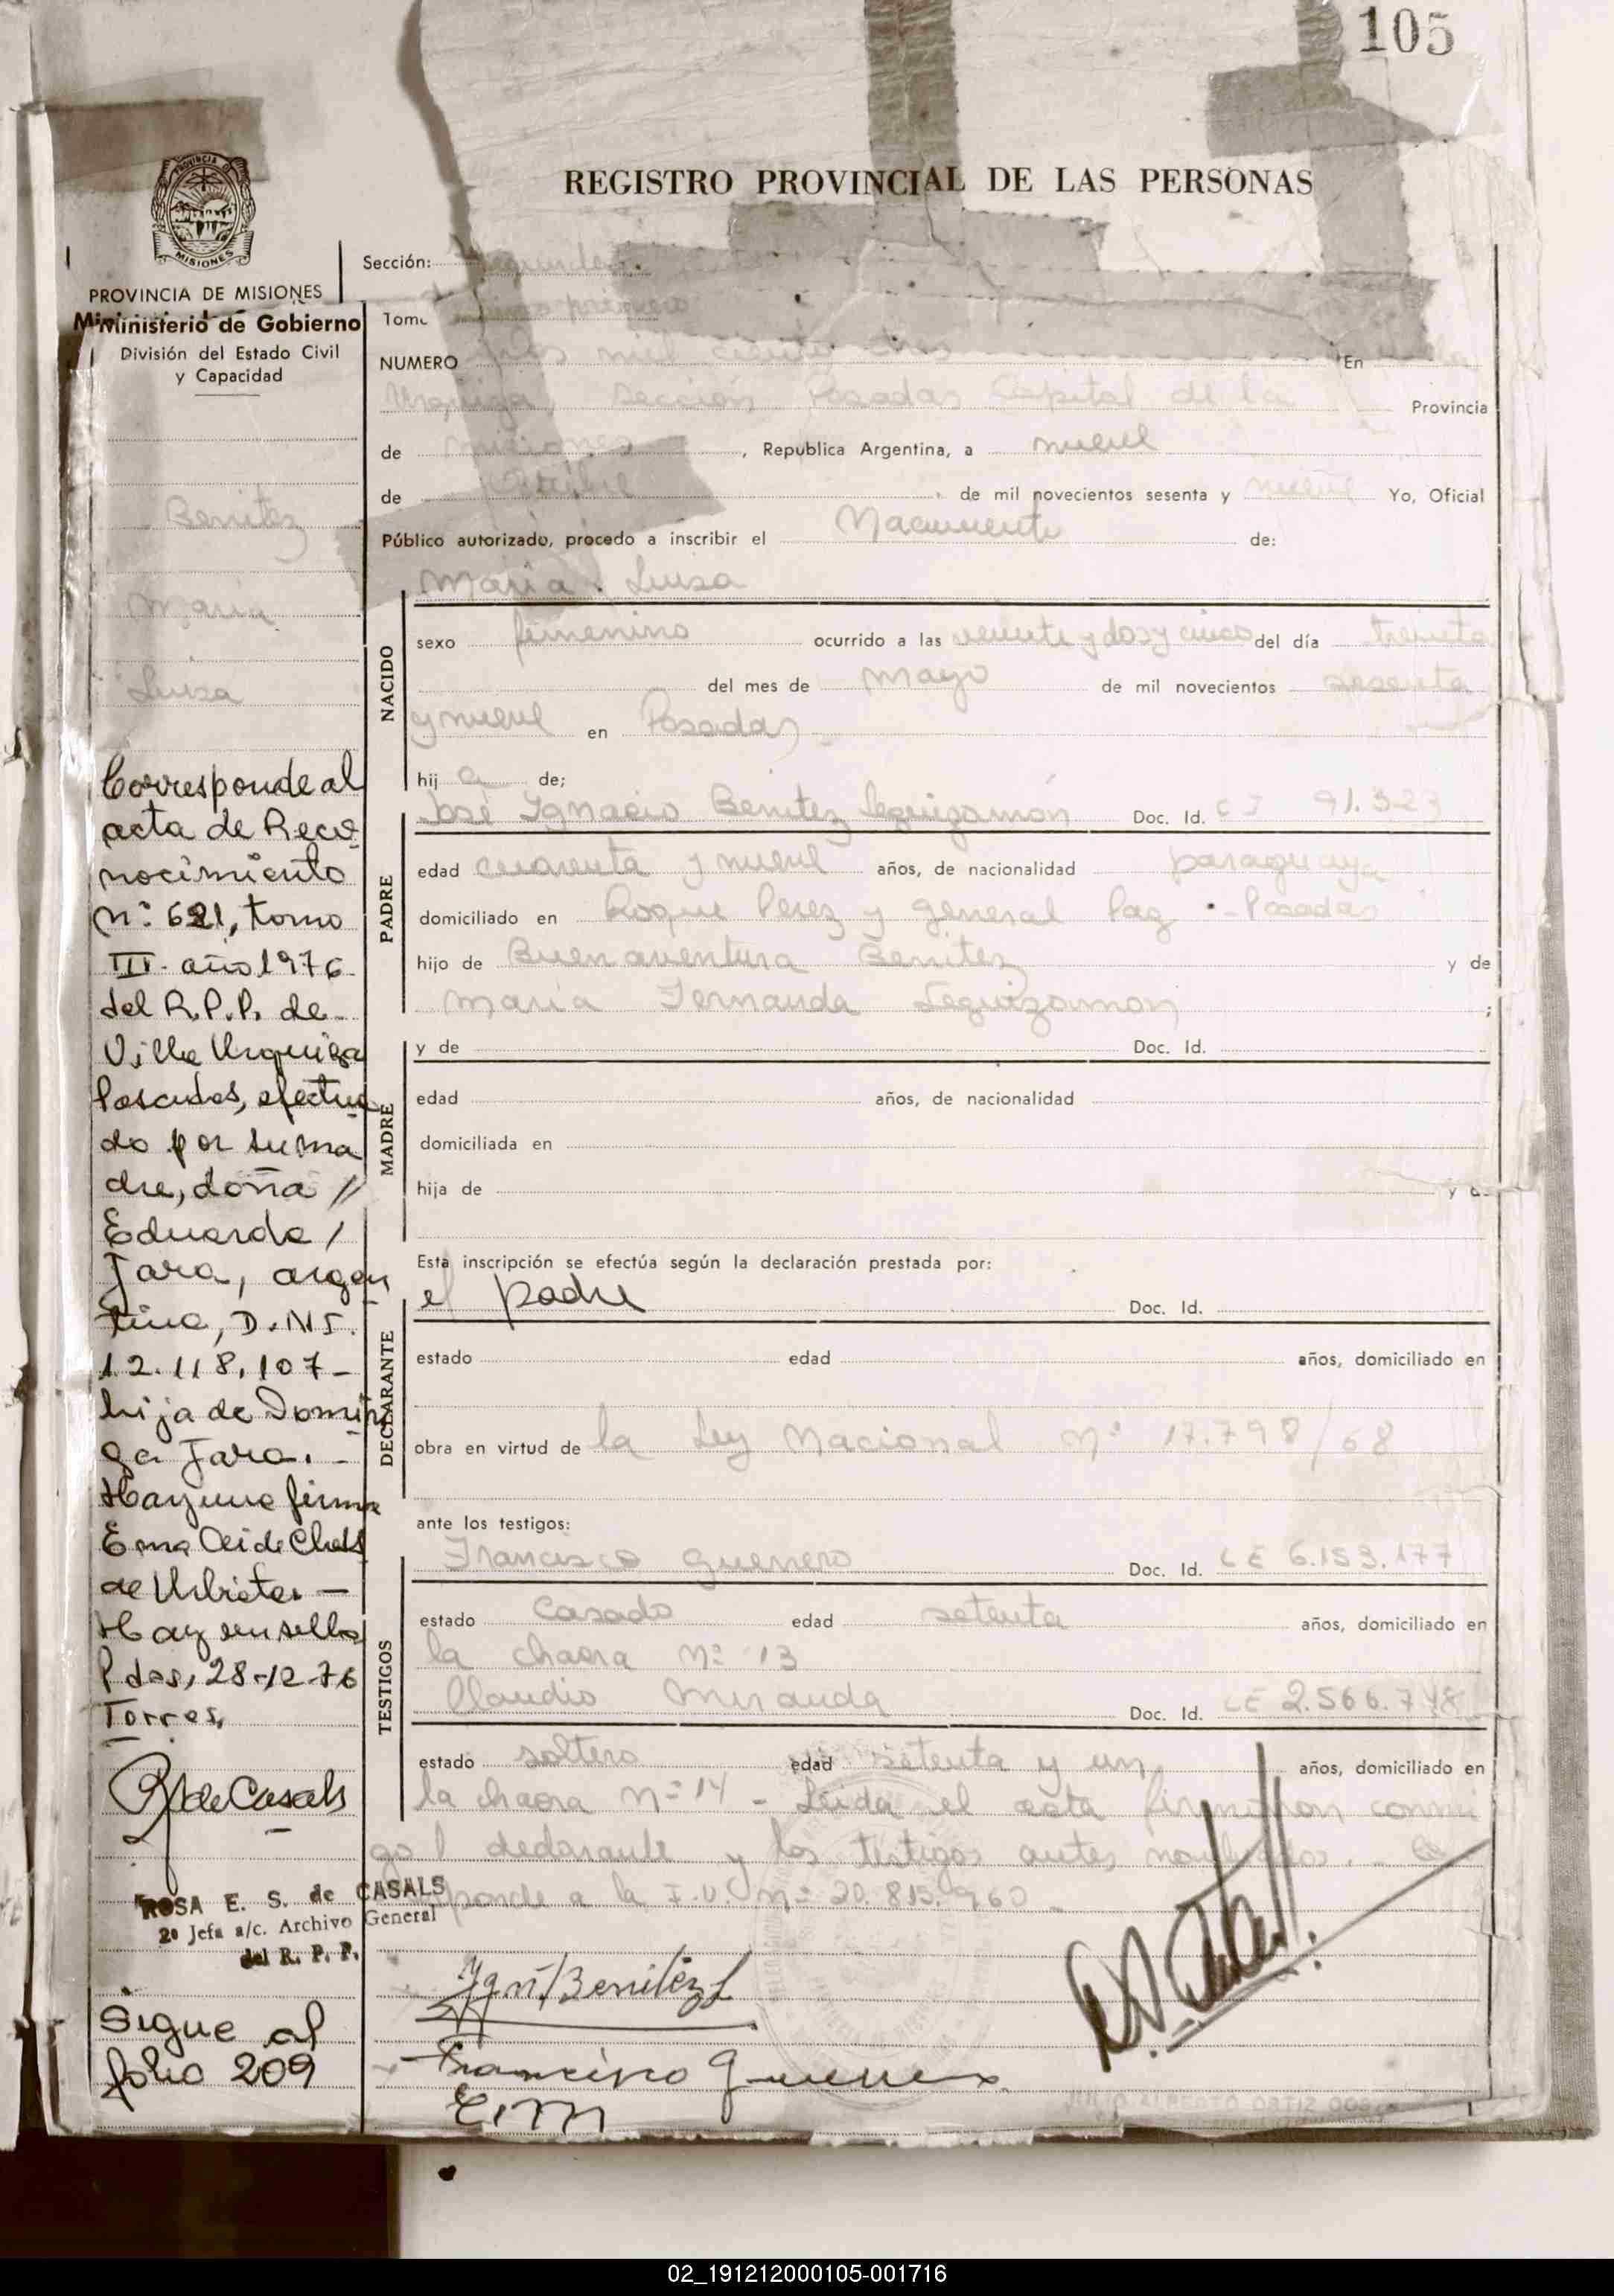 105
REGISTRO PROVINCIAL DE LAS PERSONAS
PROVINCIA DE MISIONES
Ministerio de Gobierno
División del Estado Civil
y Capacidad
Benitez
Maria
Luisa
Corresponde al
acta de Reco
nocimiento
nº 621, tomo
III año 1976
del R.P.P. de
Villa Urquiza
Posadas, efectua
do por su ma
dre, doña //
Eduarda /
Jara, argen
tina, D.N.I.
12.118.107-
hija de Domin
ga Jara. -
Hay una firma
Ema
de Urbieta. -
Hay un sello
Pdas, 28-12-76
Torres,
R de Casals
ROSA E. S. de CASALS
2º Jefa a/c. Archivo General
del R. P. P.
Sigue al
folio 209
Sección: Segunda
Tomo primero
NUMERO mil ciento tres En Villa
Urquiza, Sección Posadas Capital de la Provincia
de Misiones, Republica Argentina, a nueve
de Octubre de mil novecientos sesenta y nueve Yo, Oficial
Público autorizado, procedo a inscribir el Nacimiento de:
Maria Luisa
NACIDO
sexo femenino ocurrido a las veinte y dos y cinco del día treinta
del mes de mayo de mil novecientos sesenta
y nueve en Posadas
hij a de;
PADRE
José Ignacio Benitez Leguizamón Doc. Id. CI 91.323
edad cuarenta y nueve años, de nacionalidad paraguaya
domiciliado en Roque Perez y General Paz - Posadas
hijo de Buenaventura Benitez y de
Maria Fernanda Leguizamon ;
MADRE
y de Doc. Id.
edad años, de nacionalidad
domiciliada en
hija de y de
Esta inscripción se efectúa según la declaración prestada por:
DECLARANTE
el padre Doc. Id.
estado edad años, domiciliado en
obra en virtud de la Ley Nacional Nº 17.798/68
ante los testigos:
TESTIGOS
Francisco Guerrero Doc. Id. LE 6.153.177
estado Casado edad setenta años, domiciliado en
la chacra nº 13
Claudio Miranda Doc. Id. LE 2.566.748
estado soltero edad setenta y un años, domiciliado en
la chacra nº 14 - Leida el acta firmaron conmi
go l declarante y los testigos antes nombrados. -
ponde a la F.U. nº 20.815.960
Ign. Benitez L
Francisco Guerrero
C.M
02_191212000105-001716